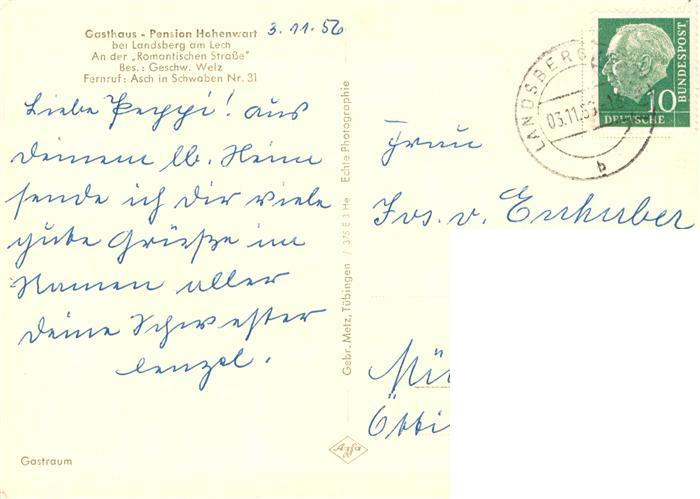 Gasthaus - Pension Hohenwart
bei Landsberg am Lech
An der „Romantischen Straße"
Bes.: Geschw. Welz
Fernruf: Asch in Schwaben Nr. 31
3.11.56
Liebe Peppi! aus
Deinem lb. Heim
sende ich dir viele
gute Grüße im
Namen aller
Deine Schwester
Gastraum
Gebr. Metz, Tübingen / 375 E 3 He Echte Photographie
Agfa
LANDSBERG
03.11.56
b
10
DEUTSCHE
BUNDESPOST
Frau
Jos. v. Enhuber
Mü
Otti